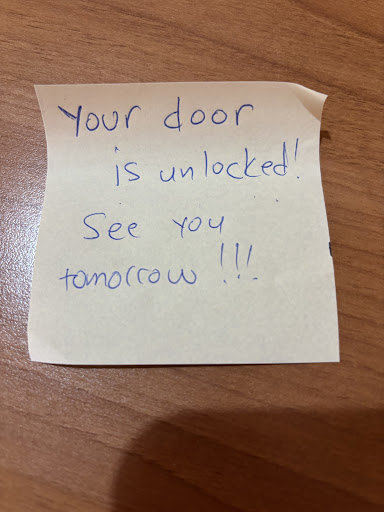 Your door
is unlocked!
See you
tomorrow !!!